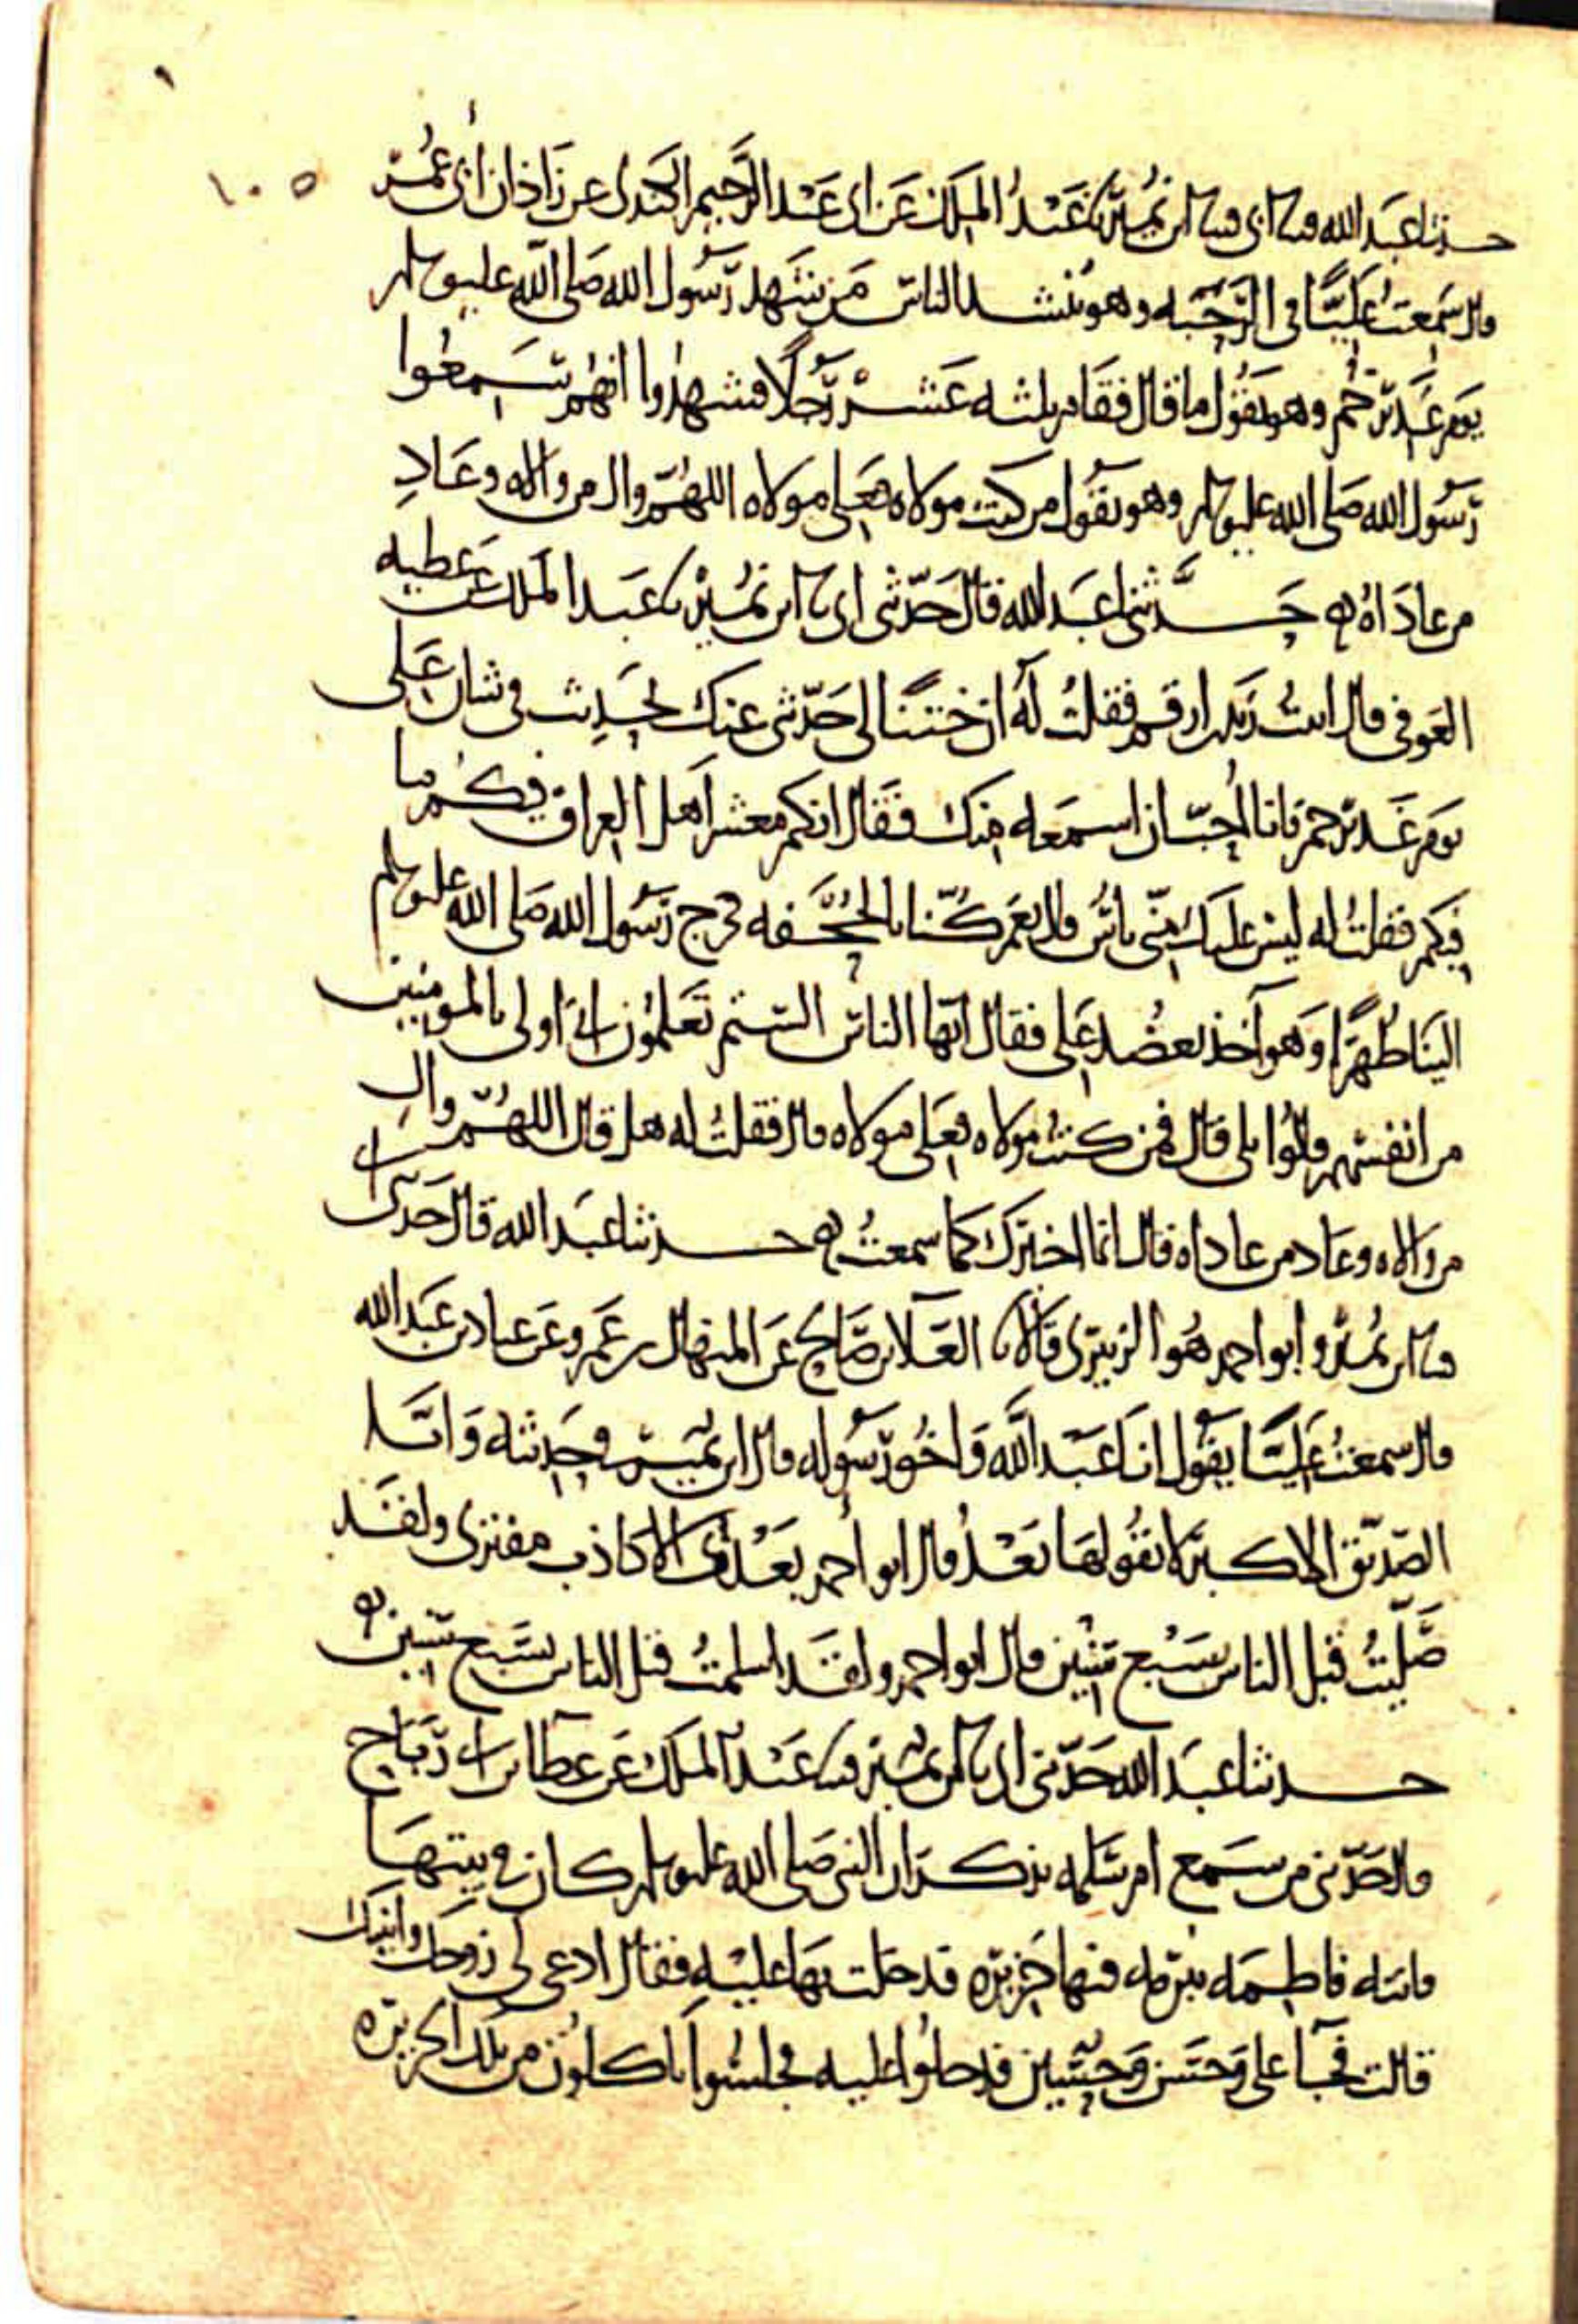 ١٠٥
حدثنا عبد الله قثنا ابي قثنا ابن نمير نا عبد الملك عن ابي عبد الرحيم الكندي عن زاذان ابي عمر
قال سمعت عليا في الرحبه وهو ينشد الناس من شهد رسول الله صلى الله عليه وسلم
يوم غدير خم وهو يقول ما قال فقام ثلثه عشر رجلا فشهدوا انهم سمعوا
رسول الله صلى الله عليه وسلم وهو يقول من كنت مولاه فعلي مولاه اللهم وال من والاه وعاد
من عاداه حدثنا عبد الله قال حدثني ابي نا ابن نمير نا عبد الملك عن عطيه
العوفي قال اتيت زيد بن ارقم فقلت له ان ختنا لي حدثني عنك بحديث في شان علي
يوم غدير خم فانا احب ان اسمعه منك فقال انكم معشر اهل العراق فيكم ما
فيكم فقلت له ليس عليك مني باس قال نعم كنا بالجحفه فخرج رسول الله صلى الله عليه وسلم
الينا ظهرا وهو آخذ بعضد علي فقال ايها الناس الستم تعلمون اني اولى بالمومنين
من انفسهم قالوا بلى قال فمن كنت مولاه فعلي مولاه قال فقلت له هل قال اللهم وال
من والاه وعاد من عاداه قال انما اخبرك كما سمعت حدثنا عبد الله قال حدثني ابي
قثنا ابن نمير وابو احمد هو الزبيري قالا نا العلا بن صالح عن المنهال بن عمرو عن عباد بن عبد الله
قال سمعت عليا يقول انا عبد الله واخو رسوله قال ابن نمير في حديثه وانا
الصديق الاكبر لا يقولها بعد قال ابو احمد بعدي الا كاذب مفتري ولقد
صليت قبل الناس بسبع سنين قال ابو احمد ولقد اسلمت قبل الناس بسبع سنين
حدثنا عبد الله حدثني ابي نا ابن نمير قثنا عبد الملك عن عطا بن ابي رباح
قال حدثني من سمع ام سلمه تذكر ان النبي صلى الله عليه وسلم كان في بيتها
فاتته فاطمه ببرمه فيها خزيره فدخلت بها عليه فقال ادعي لي زوجك وابنيك
قالت فجآ علي وحسن وحسين فدخلوا عليه فجلسوا ياكلون من تلك الخزيره